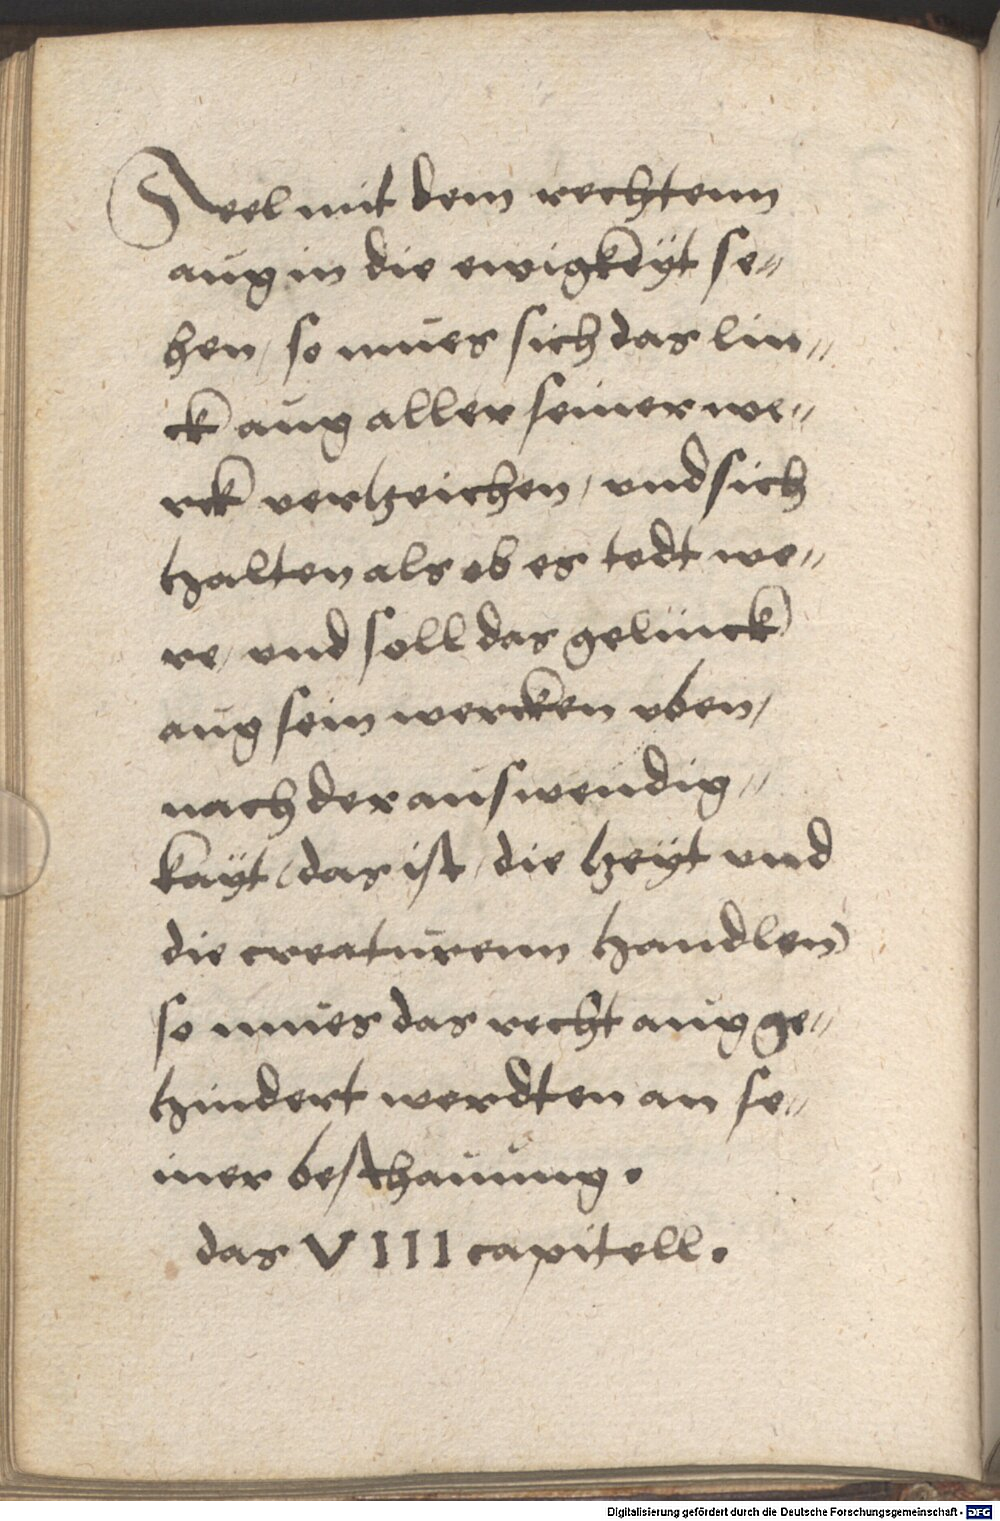 Seel mit dem rechtenn
aug in die ewigkeÿt se⸗
hen / so mues sich das lin⸗
ck aug aller seiner we⸗
rck vertzeichen / und sich
halten als ob es todt we⸗
re / und soll das gelinck
aug sein wercken vben /
nach der auswendig⸗
kaÿt / das ist / die zeÿt und
die creaturenn handlen
so mues das recht aug ge⸗
hindert werdten an se⸗
iner beschauung .
das VIII capitell .
Digitalisierung gefördert durch die Deutsche Forschungsgemeinschaft - DFG